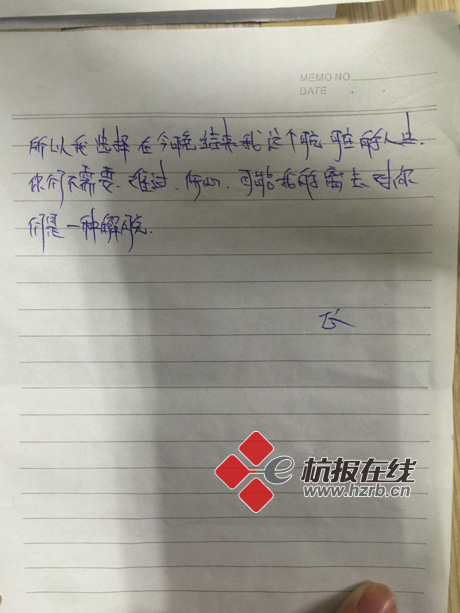 MEMO NO.
DATE
所以我选择在今晚结束我这个肮脏的人生.
你们不需要.难过.伤心.可能我的离去对你
们是一种解脱.
杭报在线
www.hzrb.cn